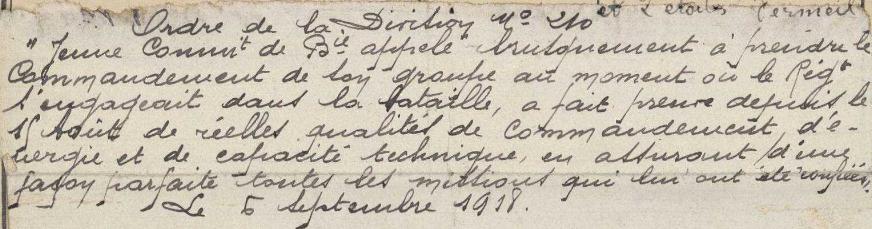 et 2 étoiles vermeil
Ordre de la Division No 210
"Jeune Commt de Bie appelé brusquement à prendre le
Commandement de son groupe au moment où le Régt
s'engageait dans la bataille, a fait preuve depuis le
15 août de réelles qualités de Commandement, d'é-
nergie et de capacité technique, en assurant d'une
façon parfaite toutes les missions qui lui ont été confiées.
Le 5 Septembre 1918.